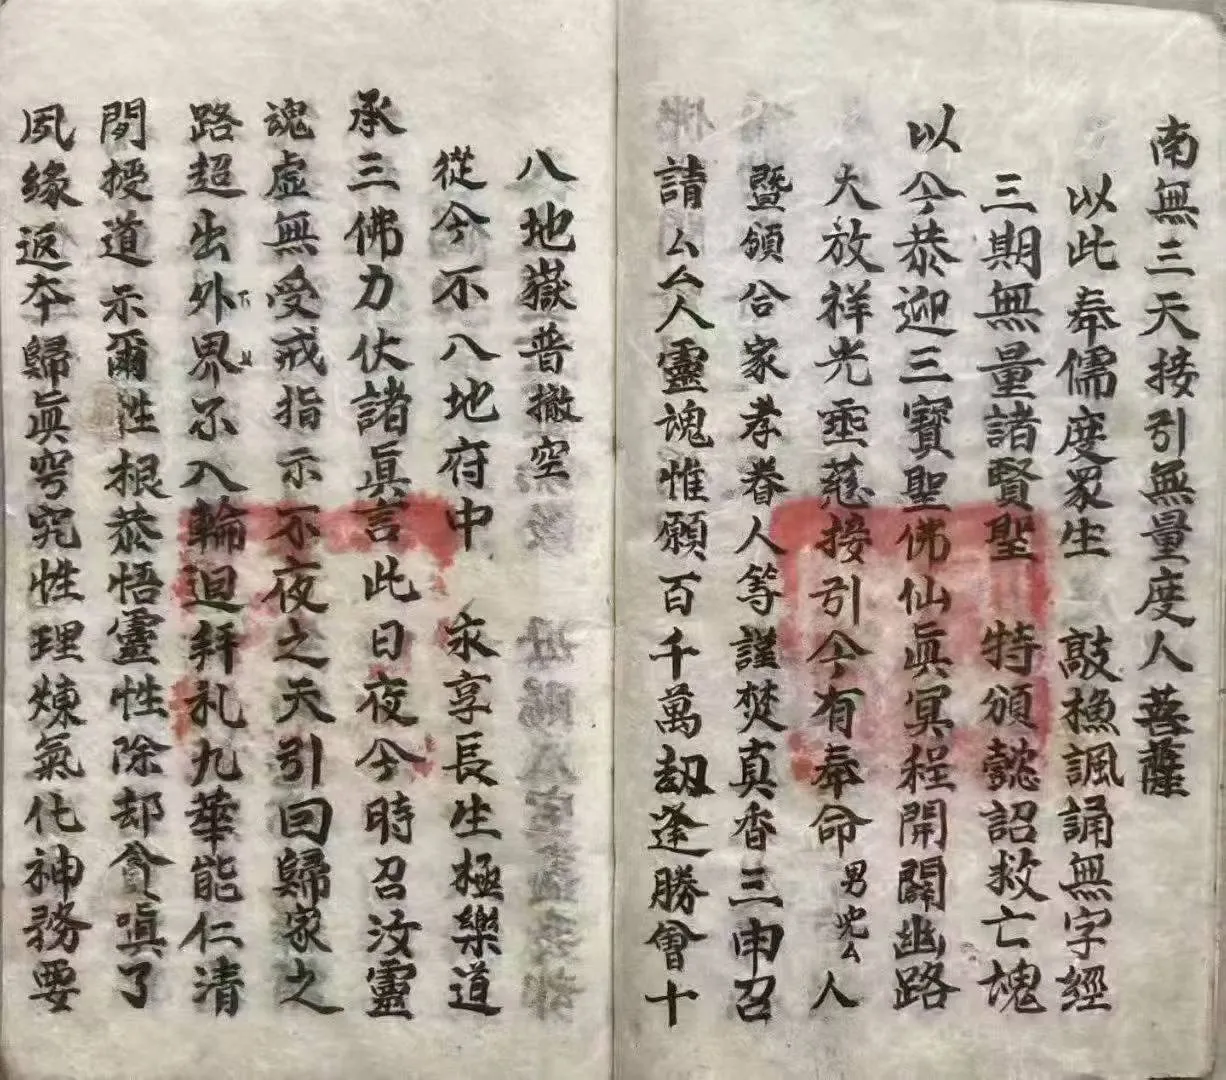 南無三天接引無量度人菩薩
以此奉儒度眾生 敲漁諷誦無字經
三期無量諸賢聖 特頒懿詔救亡魂
以今恭迎三寶聖佛仙眞冥程開闢幽路
大放祥光垂慈接引今有奉命男兠厶人
暨領合家孝眷人等謹焚真香三申召
請厶厶人靈魂惟願百千萬刧逢勝會十
八地嶽普撤空
從今不八地府中 永享長生極樂道
承三佛力仗諸眞言此日夜今時召汝靈
魂虛無受戒指示不夜之天引回歸家之
路超出外界不入輪迴拜礼九華能仁清
閒授道示爾性根恭悟靈性除却貪嗔了
夙緣返本歸眞窮究性理煉氣化神務要